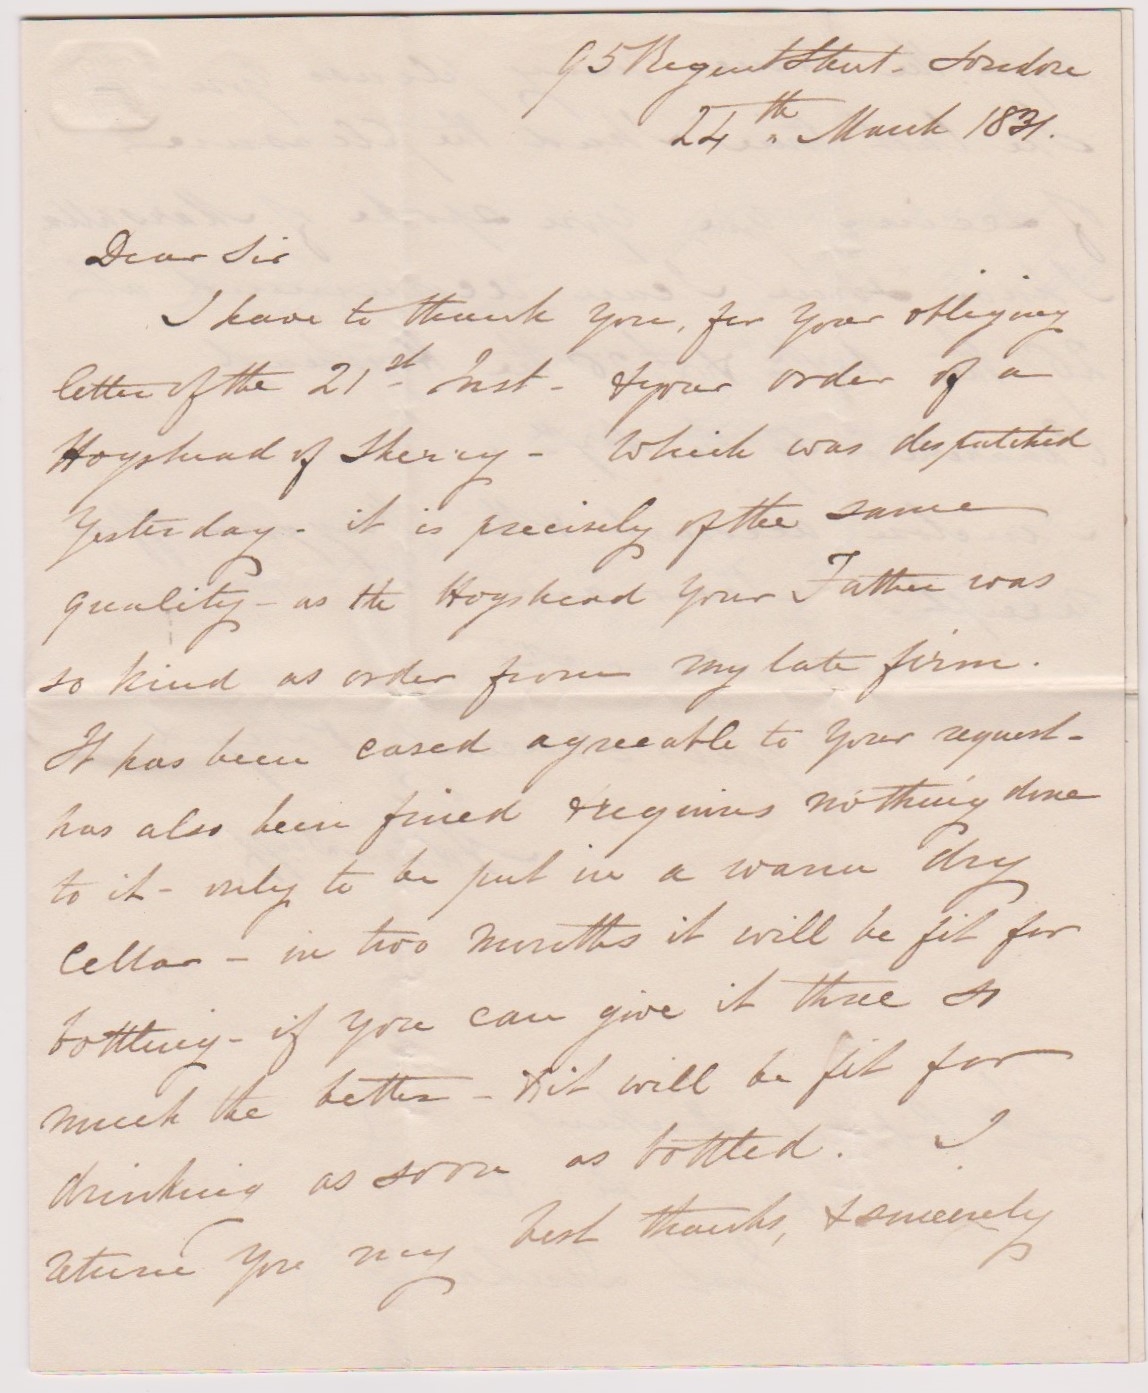 95 Regent Street - London
24th March 1831.
Dear Sir
I have to thank you, for your obliging
letter of the 21st Inst - & your order of a
Hogshead of Sherry - Which was despatched
Yesterday - it is precisely of the same
quality - as the Hogshead your Father was
so kind as order from my late firm.
It has been cased agreeable to your request -
has also been fined & requires nothing done
to it - only to be put in a warm dry
Cellar - in two months it will be fit for
bottling - if you can give it three so
much the better - & it will be fit for
drinking as soon as bottled. I
return you my best thanks, & sincerely